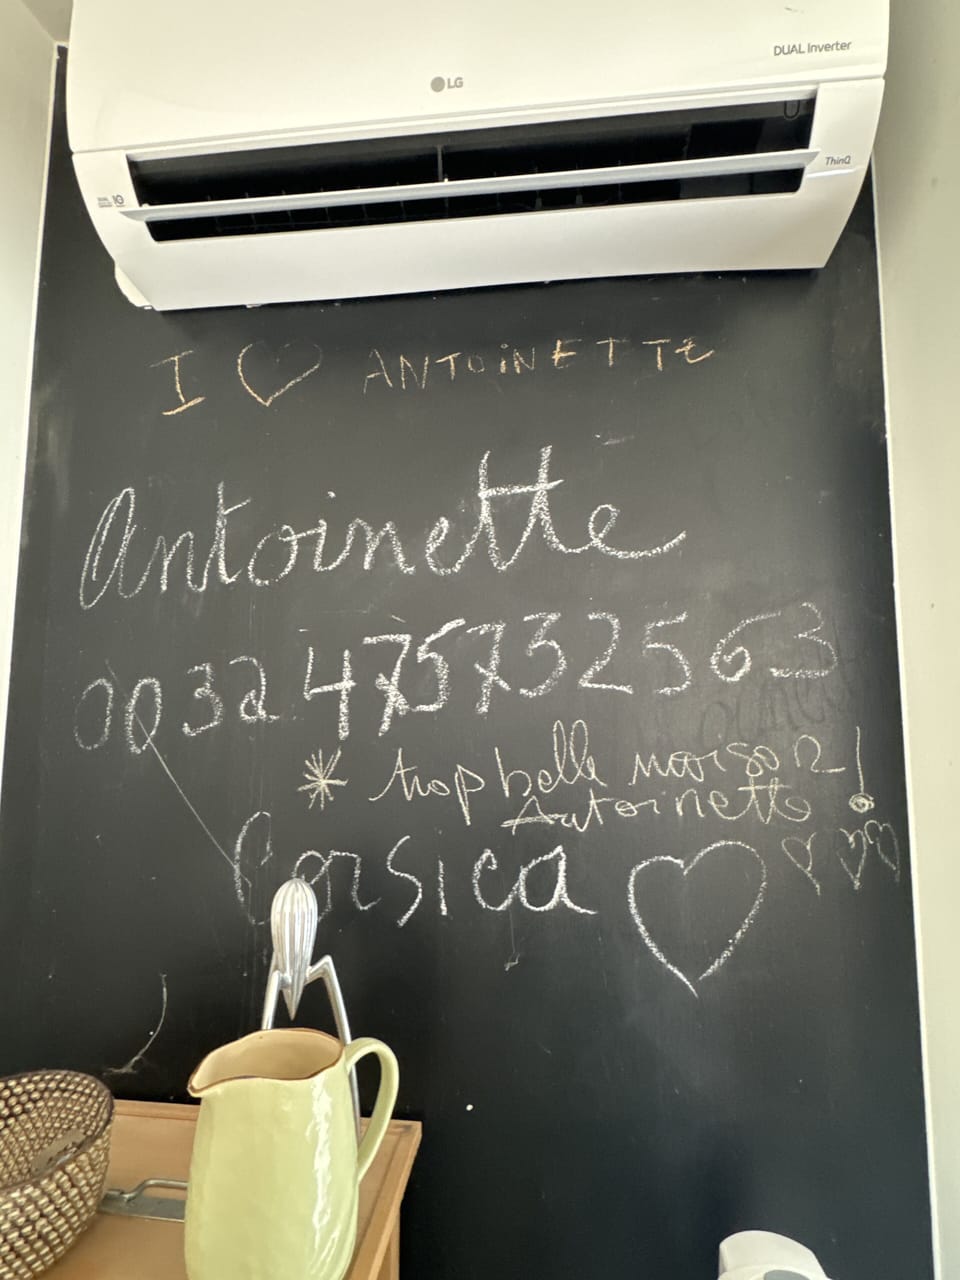 DUAL Inverter
LG
ThinQ
I ♡ ANTOINETTE
Antoinette
0032 475732563
* trop belle maison !
Antoinette
Corsica ♡